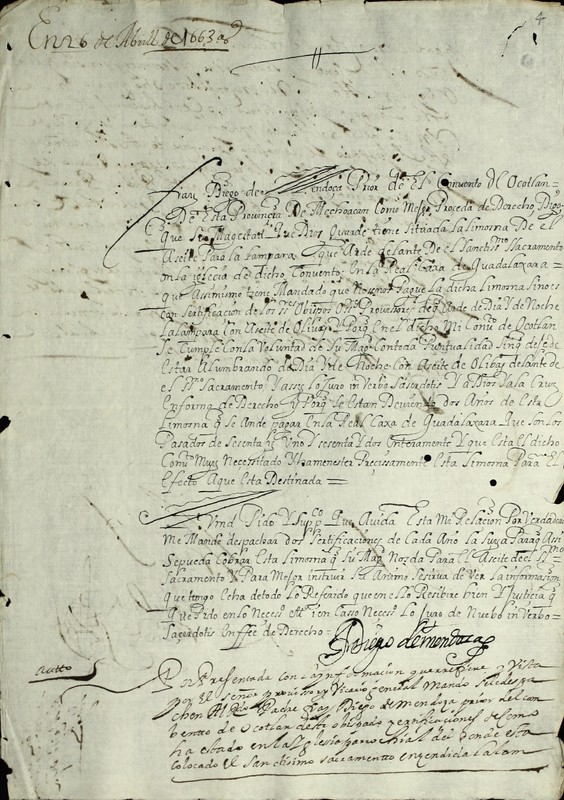 En 26 de Abrill de 1663 as
4
Fray Diego de Mendoça Prior de El Convento Dl Ocotlan =
De Esta Provincia De Mechoacan Como Mejor Proceda de Derecho Digo
que Su Magestad Que Dios Guarde tiene Situada La limosna De el
Aseite Para la Lampara que Arde delante De el Santiss.mo Sacramento
en la iglecia de dicho Convento En la Real Caxa de Guadalaxara =
que Assimismo tiene Mandado que No se nos Pague La dicha limosna sino es
con Sertificacion de los SS.res Obispos O sus Provisores de q Arde de Dia Y de Noche
La lampara Con Aseite de Olivas Y Porq En el dicho Mi Conv.to de Ocotlan
Se Cumple Con la Voluntad de Su Mag.d Con toda Puntualidad Sin q deje de
Estar Alumbrando de Dia Y de Noche Con Aseite de Olibas delante de
el SS.mo Sacramento Y assi Lo Juro in Verbo Sacerdotis Y a Dios Y a la Cruz
En forma de Derecho Y Porq Se Estan Deviendo dos Años de Esta
Limosna q Se Ande pagar En la Real Caxa de Guadalaxara Que Son Los
Pasados de Secenta Y Uno Y Sesenta Y dos Enteramente Y que Esta El dicho
Conv.to Muy Necessitado Y ha menester Precissamente Esta limosna Para El
Efecto A que Esta Destinada =
A Vmd Pido Y Sup.co Que Avida Esta Mi Relacion Por Verdadera
Me Mande despachar dos Sertificaciones de Cada Año La Suya Para q Assi
Se pueda Cobrar Esta limosna q Su Mag.d Nos da Para El Aseite del SS.mo
Sacramento Y Para Mejor instruir Su Animo Se Sirva de Ver La informacion
que tengo Echa de todo Lo Referido que en Ello Recibire bien Y Justicia q
Que Pido en lo Neces.o Y en Casso Neces.o Lo Juro de Nuebo in Verbo
Sacerdotis En ffee de Derecho =
fr Diego de mendoza
Autto
Por Presentada con la Ynformacion que rrefiere y Vista
por el señor provissor y Vicario general Mando Se le despa
chen Al Rdo Padre fray Diego de Mendoza prior del con
bentto de Ocotlan deste obispado sertificaciones de como
ha estado en la Yglesia parrochial del donde esta
colocado el santissimo sacramentto encendida la lam